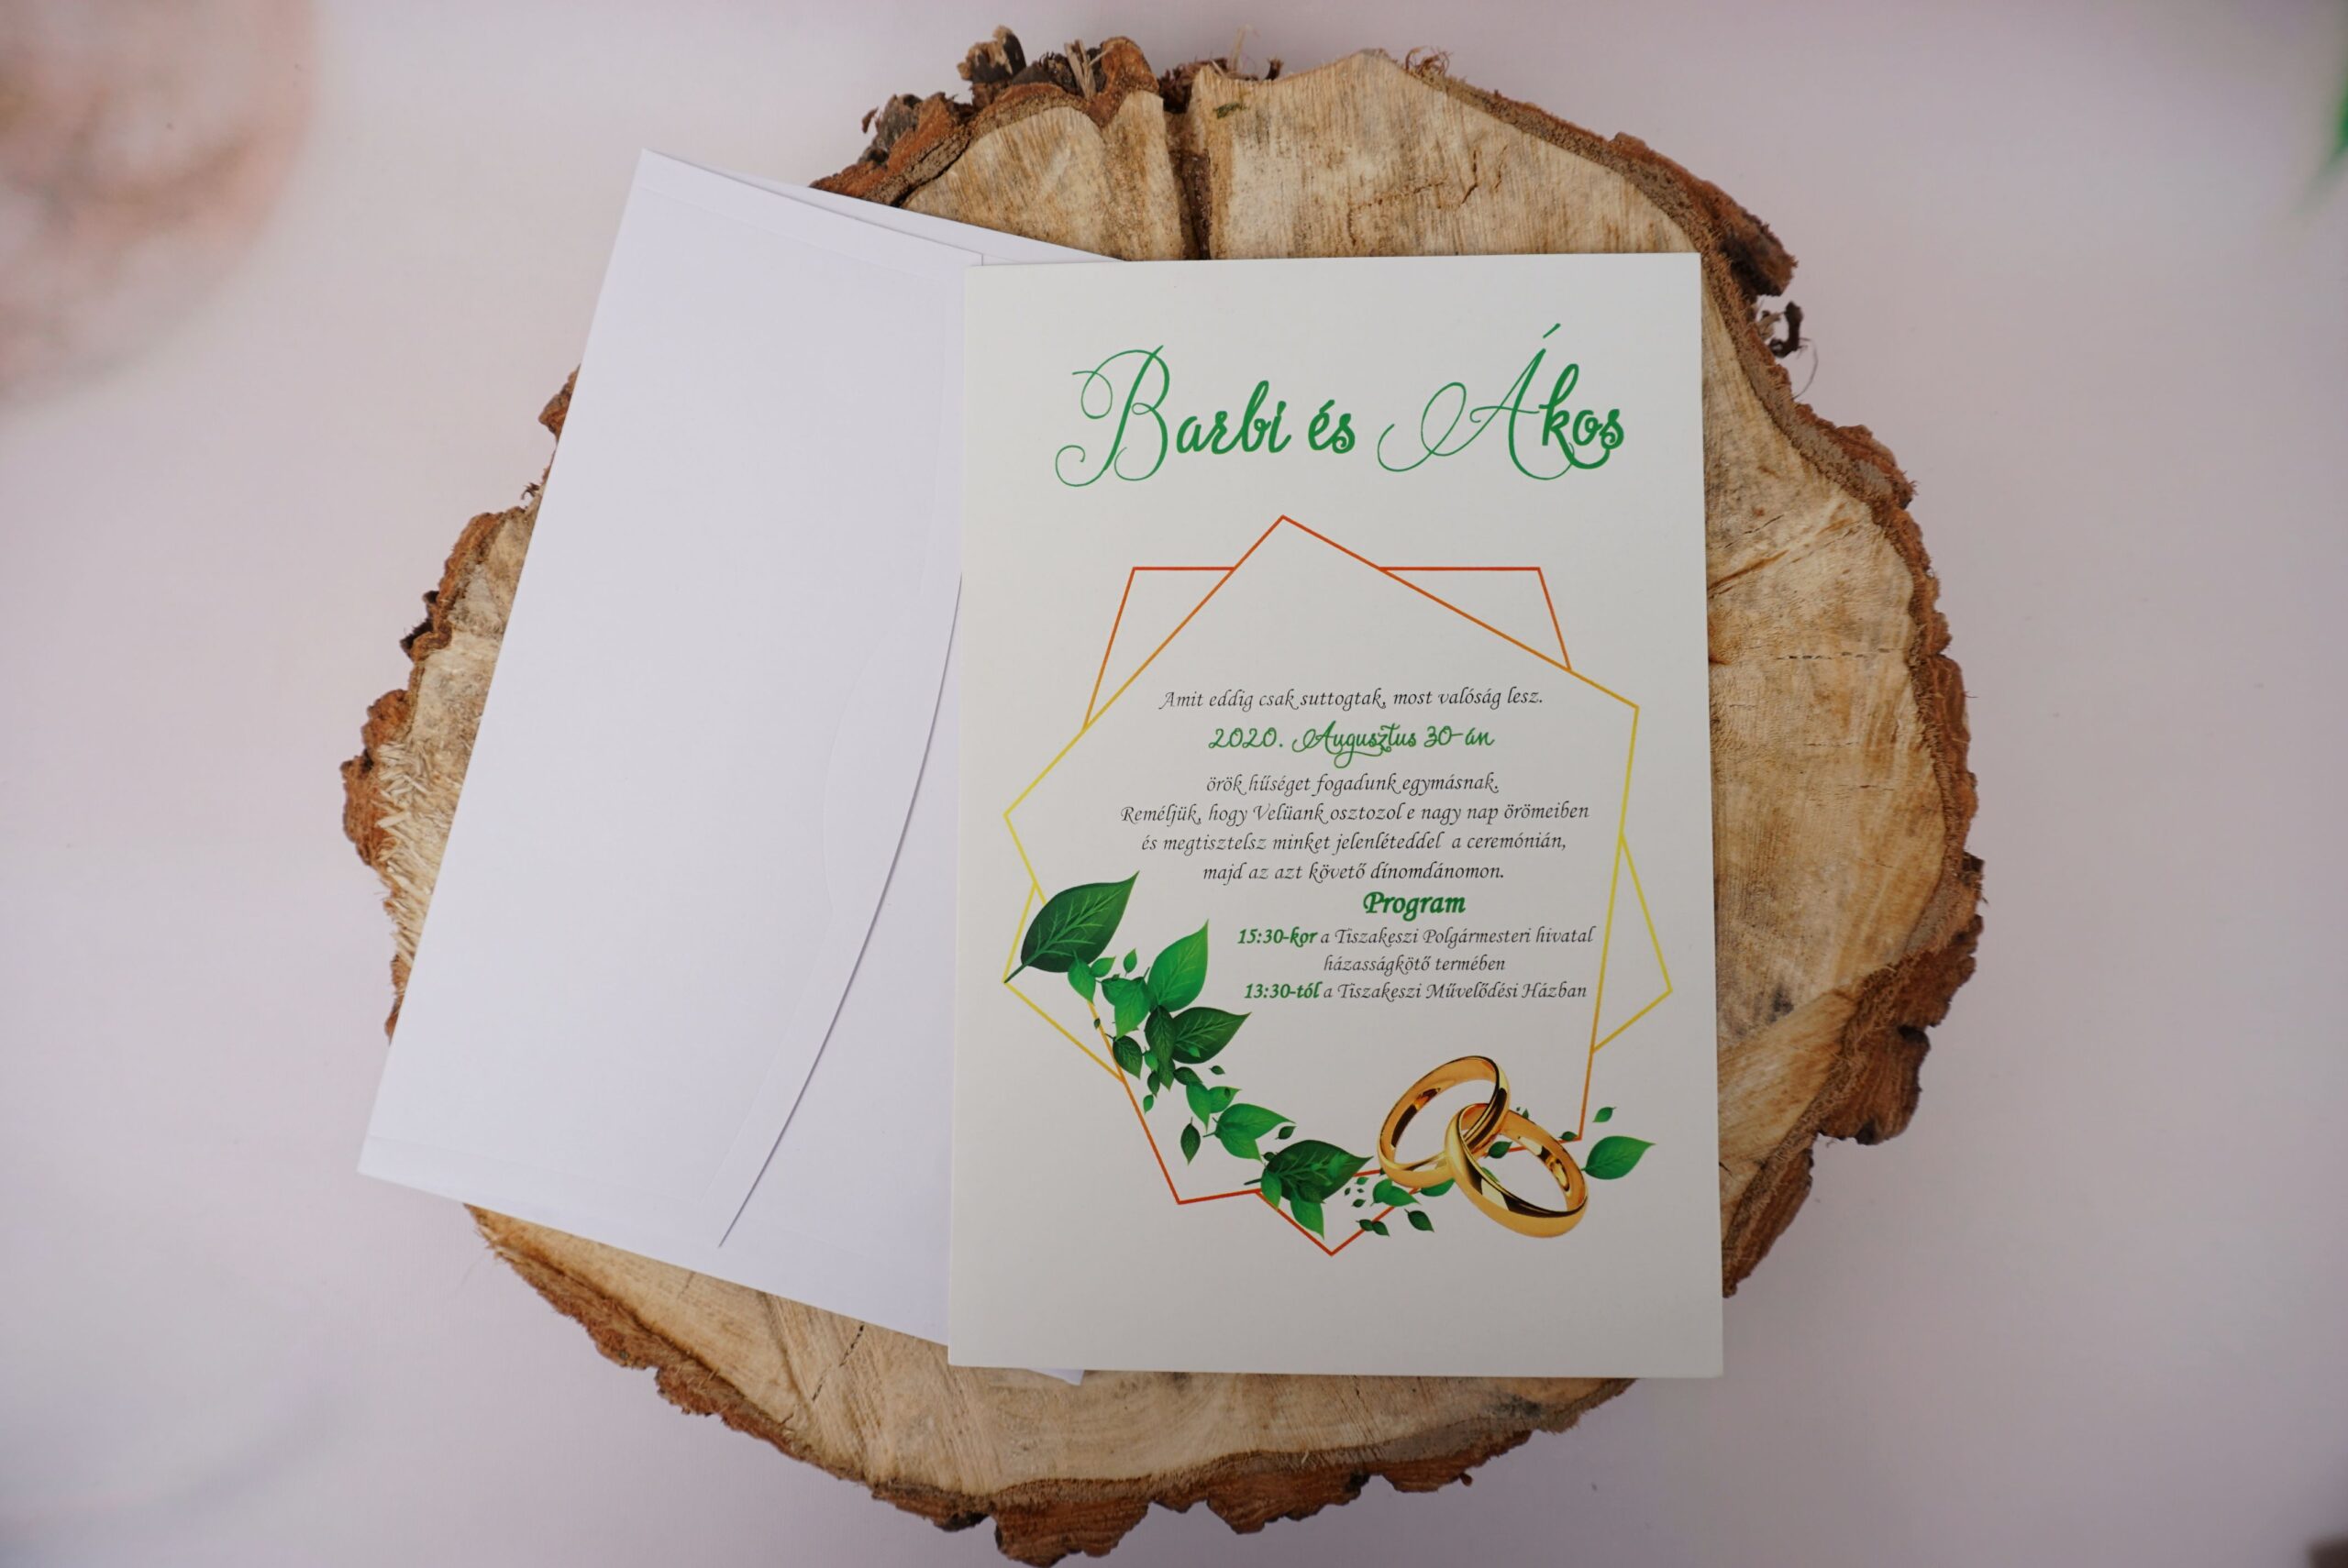 Barbi és Ákos
Amit eddig csak suttogtak, most valóság lesz.
2020. Augusztus 30-án
örök hűséget fogadunk egymásnak.
Reméljük, hogy Velüank osztozol e nagy nap örömeiben
és megtisztelsz minket jelenléteddel a ceremónián,
majd az azt követő dínomdánomon.
Program
15:30-kor a Tiszakeszi Polgármesteri hivatal
házasságkötő termében
13:30-tól a Tiszakeszi Művelődési Házban